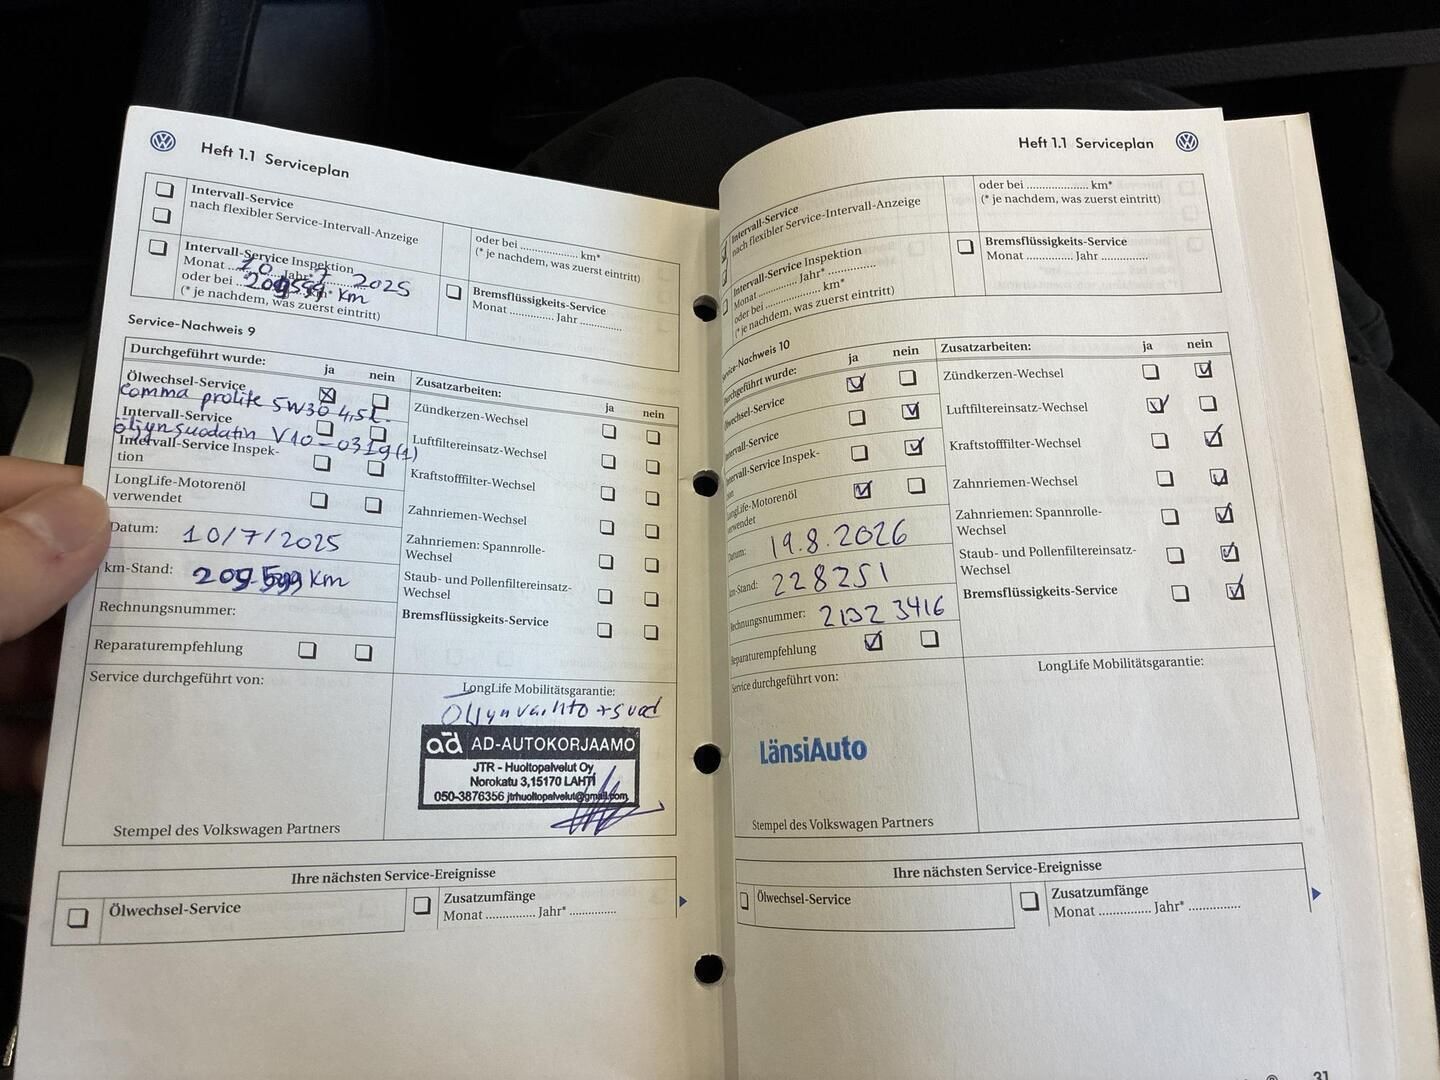 Heft 1.1 Serviceplan
Intervall-Service
nach flexibler Service-Intervall-Anzeige
Intervall-Service Inspektion
Monat ... 10 Jahr* 7 2025
oder bei ... km
(* je nachdem, was zuerst eintritt)
oder bei .................... km*
(* je nachdem, was zuerst eintritt)
Bremsflüssigkeits-Service
Monat ............. Jahr ............
Service-Nachweis 9
Durchgeführt wurde:
ja
nein
Ölwechsel-Service
Comma prolife 5W30 4,5L.
Intervall-Service
öljynsuodatin V10-0319(1)
Intervall-Service Inspek-
tion
LongLife-Motorenöl
verwendet
Datum: 10/7/2025
km-Stand: 209.599 km
Rechnungsnummer:
Reparaturempfehlung
Zusatzarbeiten:
ja
nein
Zündkerzen-Wechsel
Luftfiltereinsatz-Wechsel
Kraftstofffilter-Wechsel
Zahnriemen-Wechsel
Zahnriemen: Spannrolle-
Wechsel
Staub- und Pollenfiltereinsatz-
Wechsel
Bremsflüssigkeits-Service
Service durchgeführt von:
Stempel des Volkswagen Partners
LongLife Mobilitätsgarantie:
Öljynvaihto + suod
ad AD-AUTOKORJAAMO
JTR - Huoltopalvelut Oy
Norokatu 3,15170 LAHTI
050-3876356 jtrhuoltopalvelut@gmail.com
Ihre nächsten Service-Ereignisse
Ölwechsel-Service
Zusatzumfänge
Monat ............... Jahr* ..............
Heft 1.1 Serviceplan
Intervall-Service
nach flexibler Service-Intervall-Anzeige
Intervall-Service Inspektion
Monat ............. Jahr* ..............
oder bei .................... km*
(* je nachdem, was zuerst eintritt)
oder bei .................... km*
(* je nachdem, was zuerst eintritt)
Bremsflüssigkeits-Service
Monat ............. Jahr ..............
Service-Nachweis 10
Durchgeführt wurde:
ja
nein
Ölwechsel-Service
Intervall-Service
Intervall-Service Inspek-
tion
LongLife-Motorenöl
verwendet
Datum: 19.8.2026
km-Stand: 228251
Rechnungsnummer: 21323416
Reparaturempfehlung
Zusatzarbeiten:
ja
nein
Zündkerzen-Wechsel
Luftfiltereinsatz-Wechsel
Kraftstofffilter-Wechsel
Zahnriemen-Wechsel
Zahnriemen: Spannrolle-
Wechsel
Staub- und Pollenfiltereinsatz-
Wechsel
Bremsflüssigkeits-Service
Service durchgeführt von:
LänsiAuto
Stempel des Volkswagen Partners
LongLife Mobilitätsgarantie:
Ihre nächsten Service-Ereignisse
Ölwechsel-Service
Zusatzumfänge
Monat ............... Jahr* ..............
31